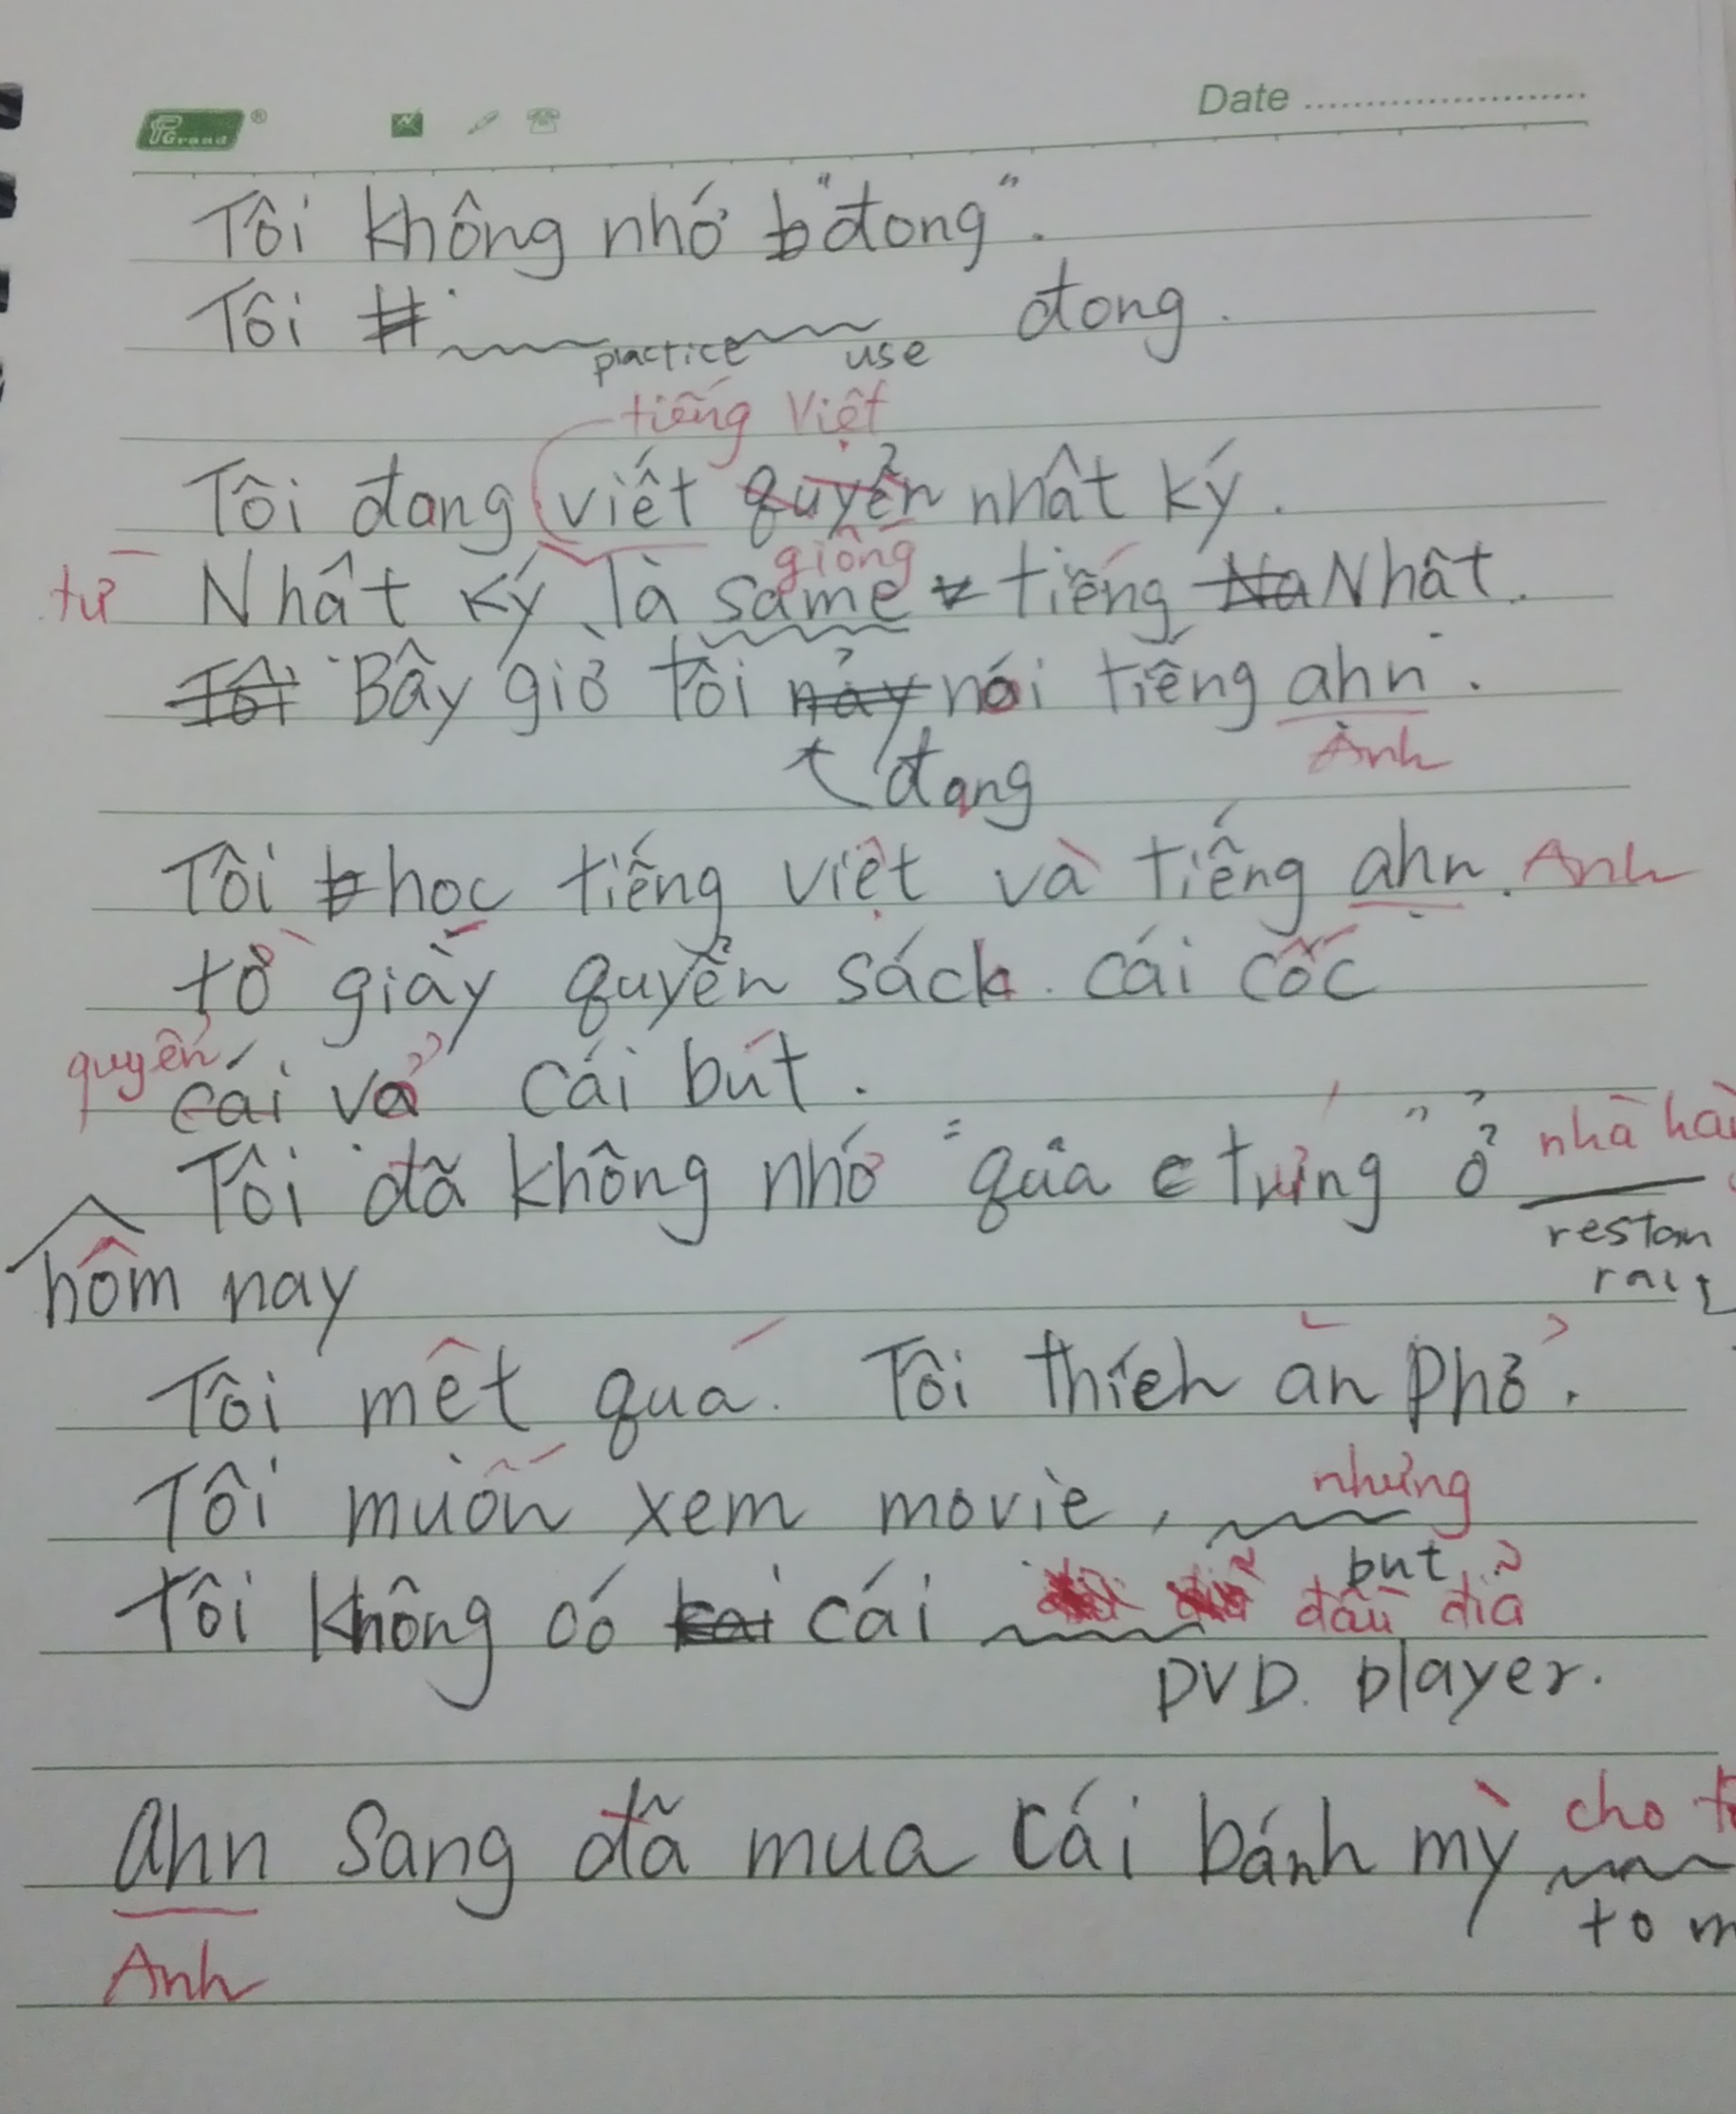 PGrand ® Date
Tôi không nhớ "đong".
Tôi practice use đong.
tiếng Việt
Tôi đang viết quyển nhật ký.
giống
từ Nhật ký là same tiếng Nhật.
Bây giờ tôi nói tiếng ahn.
đang Anh
Tôi học tiếng việt và tiếng ahn. Anh
tờ giấy quyển sách. cái cốc
quyển
cái vở cái bút.
Tôi đã không nhớ "quả trứng" ở nhà hà
restau
hôm nay rant
Tôi mêt quá. Tôi thích ăn Phở.
nhưng
Tôi muốn xem movie,
but
Tôi không có cái đầu đĩa
DVD. player.
cho t
ahn Sang đã mua cái bánh mỳ
to m
Anh